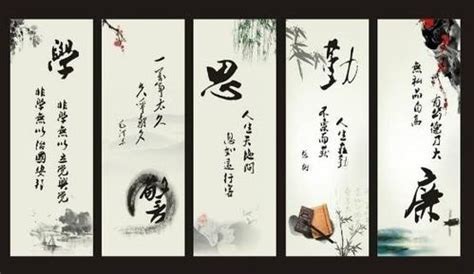 學
非學無以立党興党
非學無以治國安邦
一萬年太久
只爭朝夕
思
人生天地間
忽如遠行客
勤
人生在勤
不索何獲
張衡
有容德乃大
無私品自高
廉